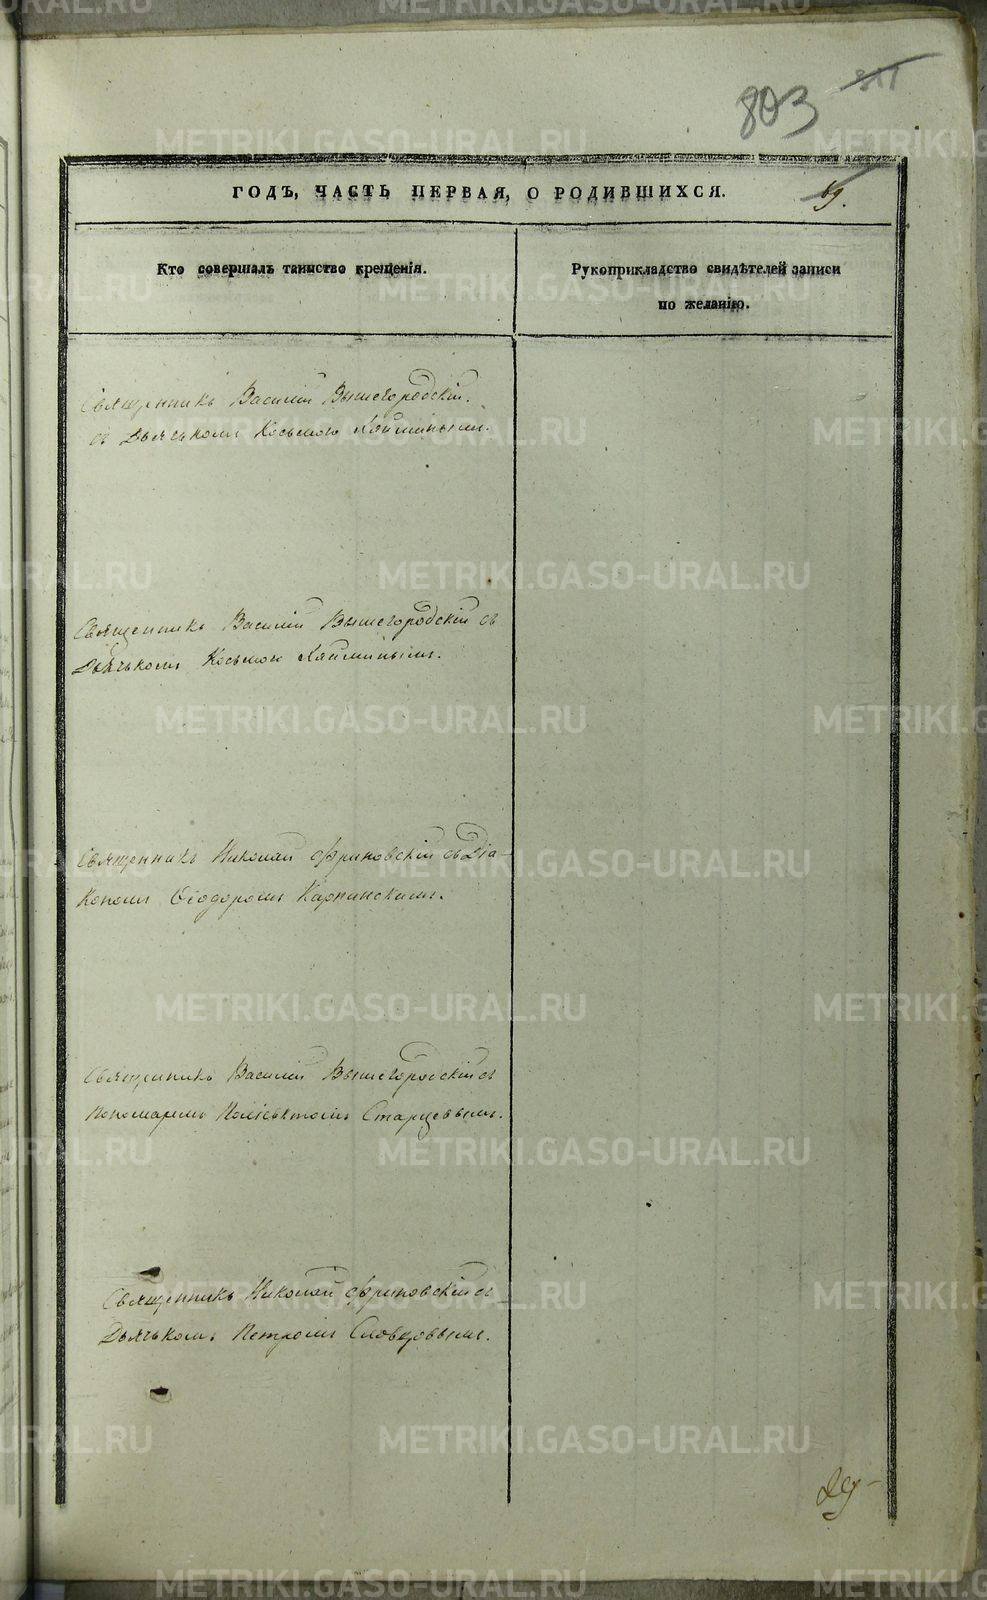 811
803
ГОДЪ, ЧАСТЬ ПЕРВАЯ, О РОДИВШИХСЯ.
69.
Кто совершалъ таинство крещенія.
Рукоприкладство свидѣтелей записи
по желанію.
Священникъ Василій Вышегородскій.
съ Дьячькомъ Косьмою Хайминымъ.
Священникъ Василій Вышегородскій съ
Дьячькомъ Косьмою Хайминымъ.
Священникъ Николай Фриновскій съ Діа-
кономъ Ѳеодоромъ Карпинскимъ.
Священникъ Василій Вышегородскій съ
Пономаремъ Поліевктомъ Старцевымъ.
Священникъ Николай Фриновскій съ
Дьячькомъ Петромъ Словцовымъ.
METRIKI.GASO-URAL.RU